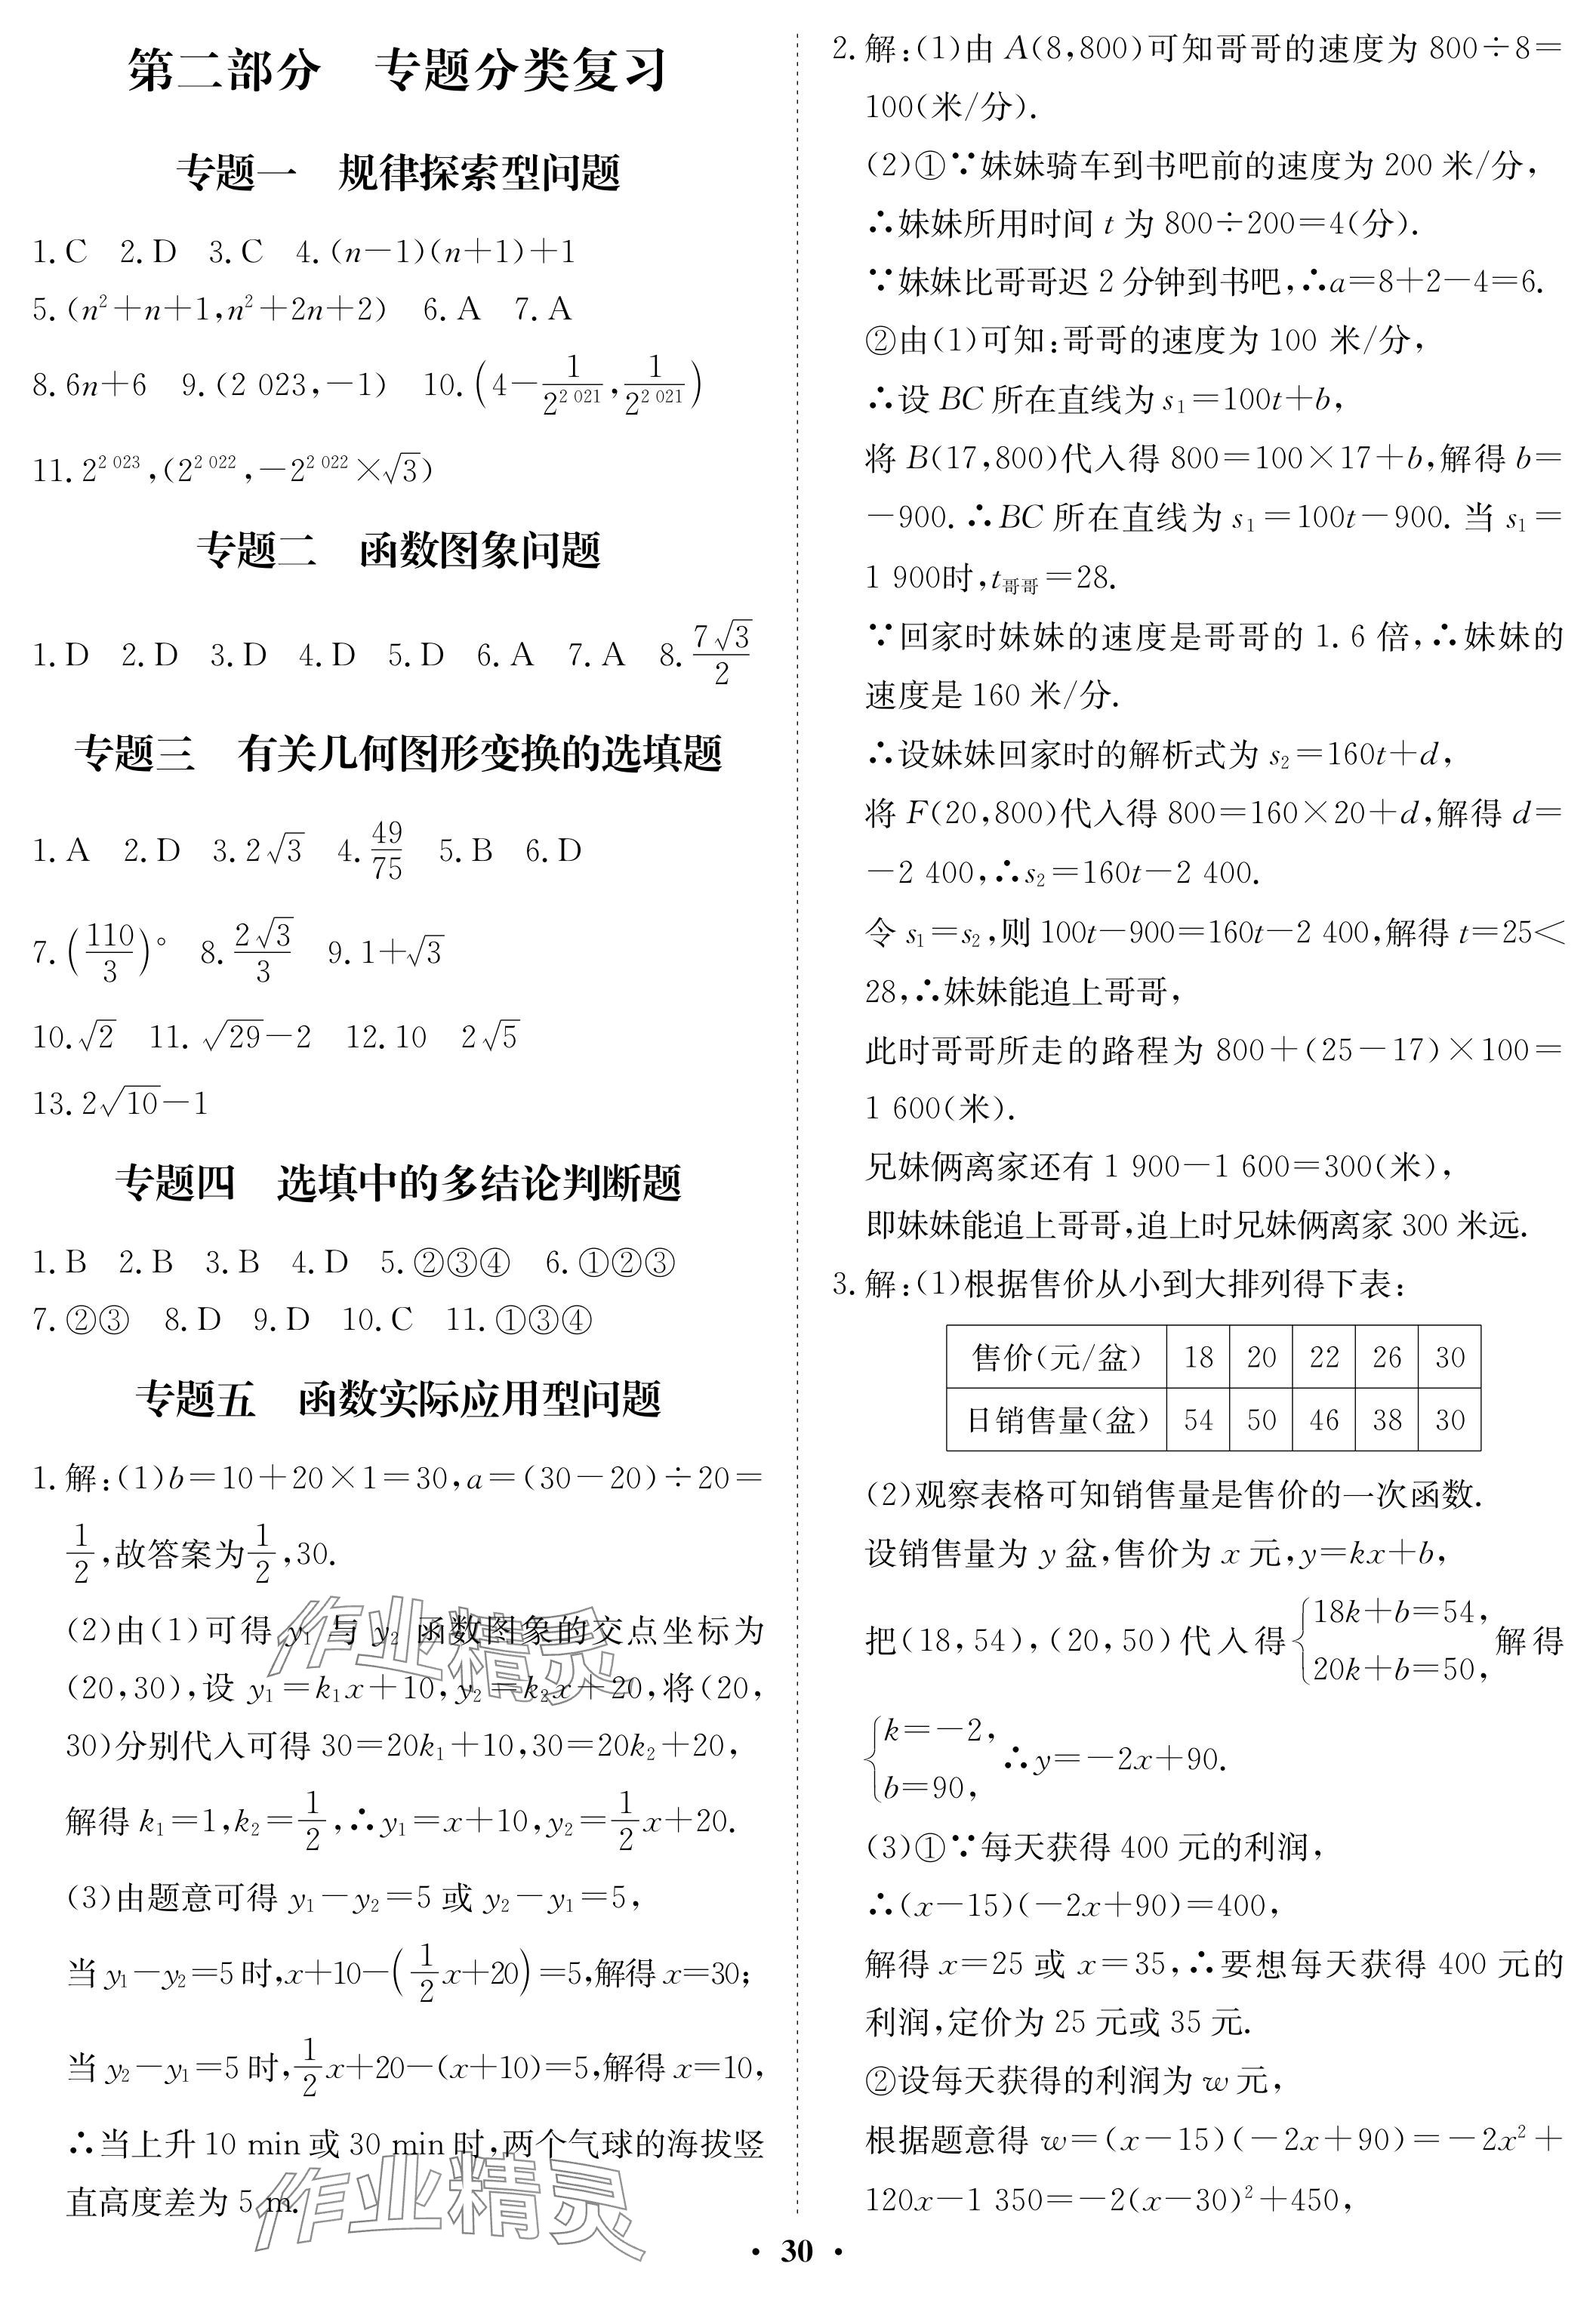 第二部分　专题分类复习
专题一　规律探索型问题
1. C　2. D　3. C　4. (n－1)(n＋1)＋1
5. (n²＋n＋1,n²＋2n＋2)　6. A　7. A
8. 6n＋6　9. (2 023,－1)　10. (4－1/2^{2 021},1/2^{2 021})
11. 2^{2 023},(2^{2 022},－2^{2 022}×√3)
专题二　函数图象问题
1. D　2. D　3. D　4. D　5. D　6. A　7. A　8. 7√3/2
专题三　有关几何图形变换的选填题
1. A　2. D　3. 2√3　4. 49/75　5. B　6. D
7. (110/3)°　8. 2√3/3　9. 1＋√3
10. √2　11. √29－2　12. 10　2√5
13. 2√10－1
专题四　选填中的多结论判断题
1. B　2. B　3. B　4. D　5. ②③④　6. ①②③
7. ②③　8. D　9. D　10. C　11. ①③④
专题五　函数实际应用型问题
1. 解:(1)b＝10＋20×1＝30,a＝(30－20)÷20＝
1/2,故答案为1/2,30.
(2)由(1)可得 y₁ 与 y₂ 函数图象的交点坐标为
(20,30),设 y₁＝k₁x＋10,y₂＝k₂x＋20,将(20,
30)分别代入可得 30＝20k₁＋10,30＝20k₂＋20,
解得 k₁＝1,k₂＝1/2,∴y₁＝x＋10,y₂＝1/2x＋20.
(3)由题意可得 y₁－y₂＝5 或 y₂－y₁＝5,
当 y₁－y₂＝5 时,x＋10－(1/2x＋20)＝5,解得 x＝30;
当 y₂－y₁＝5 时,1/2x＋20－(x＋10)＝5,解得 x＝10,
∴当上升 10 min 或 30 min 时,两个气球的海拔竖
直高度差为 5 m.
2. 解:(1)由 A(8,800)可知哥哥的速度为 800÷8＝
100(米/分).
(2)①∵妹妹骑车到书吧前的速度为 200 米/分,
∴妹妹所用时间 t 为 800÷200＝4(分).
∵妹妹比哥哥迟 2 分钟到书吧,∴a＝8＋2－4＝6.
②由(1)可知:哥哥的速度为 100 米/分,
∴设 BC 所在直线为 s₁＝100t＋b,
将 B(17,800)代入得 800＝100×17＋b,解得 b＝
－900. ∴BC 所在直线为 s₁＝100t－900. 当 s₁＝
1 900时,t哥哥＝28.
∵回家时妹妹的速度是哥哥的 1. 6 倍,∴妹妹的
速度是 160 米/分.
∴设妹妹回家时的解析式为 s₂＝160t＋d,
将 F(20,800)代入得 800＝160×20＋d,解得 d＝
－2 400,∴s₂＝160t－2 400.
令 s₁＝s₂,则 100t－900＝160t－2 400,解得 t＝25＜
28,∴妹妹能追上哥哥,
此时哥哥所走的路程为 800＋(25－17)×100＝
1 600(米).
兄妹俩离家还有 1 900－1 600＝300(米),
即妹妹能追上哥哥,追上时兄妹俩离家 300 米远.
3. 解:(1)根据售价从小到大排列得下表:
售价(元/盆)　18　20　22　26　30
日销售量(盆)　54　50　46　38　30
(2)观察表格可知销售量是售价的一次函数.
设销售量为 y 盆,售价为 x 元,y＝kx＋b,
把(18,54),(20,50)代入得{18k＋b＝54,20k＋b＝50,解得
{k＝－2,b＝90,∴y＝－2x＋90.
(3)①∵每天获得 400 元的利润,
∴(x－15)(－2x＋90)＝400,
解得 x＝25 或 x＝35,∴要想每天获得 400 元的
利润,定价为 25 元或 35 元.
②设每天获得的利润为 w 元,
根据题意得 w＝(x－15)(－2x＋90)＝－2x²＋
120x－1 350＝－2(x－30)²＋450,
作业精灵
作业精灵
· 30 ·